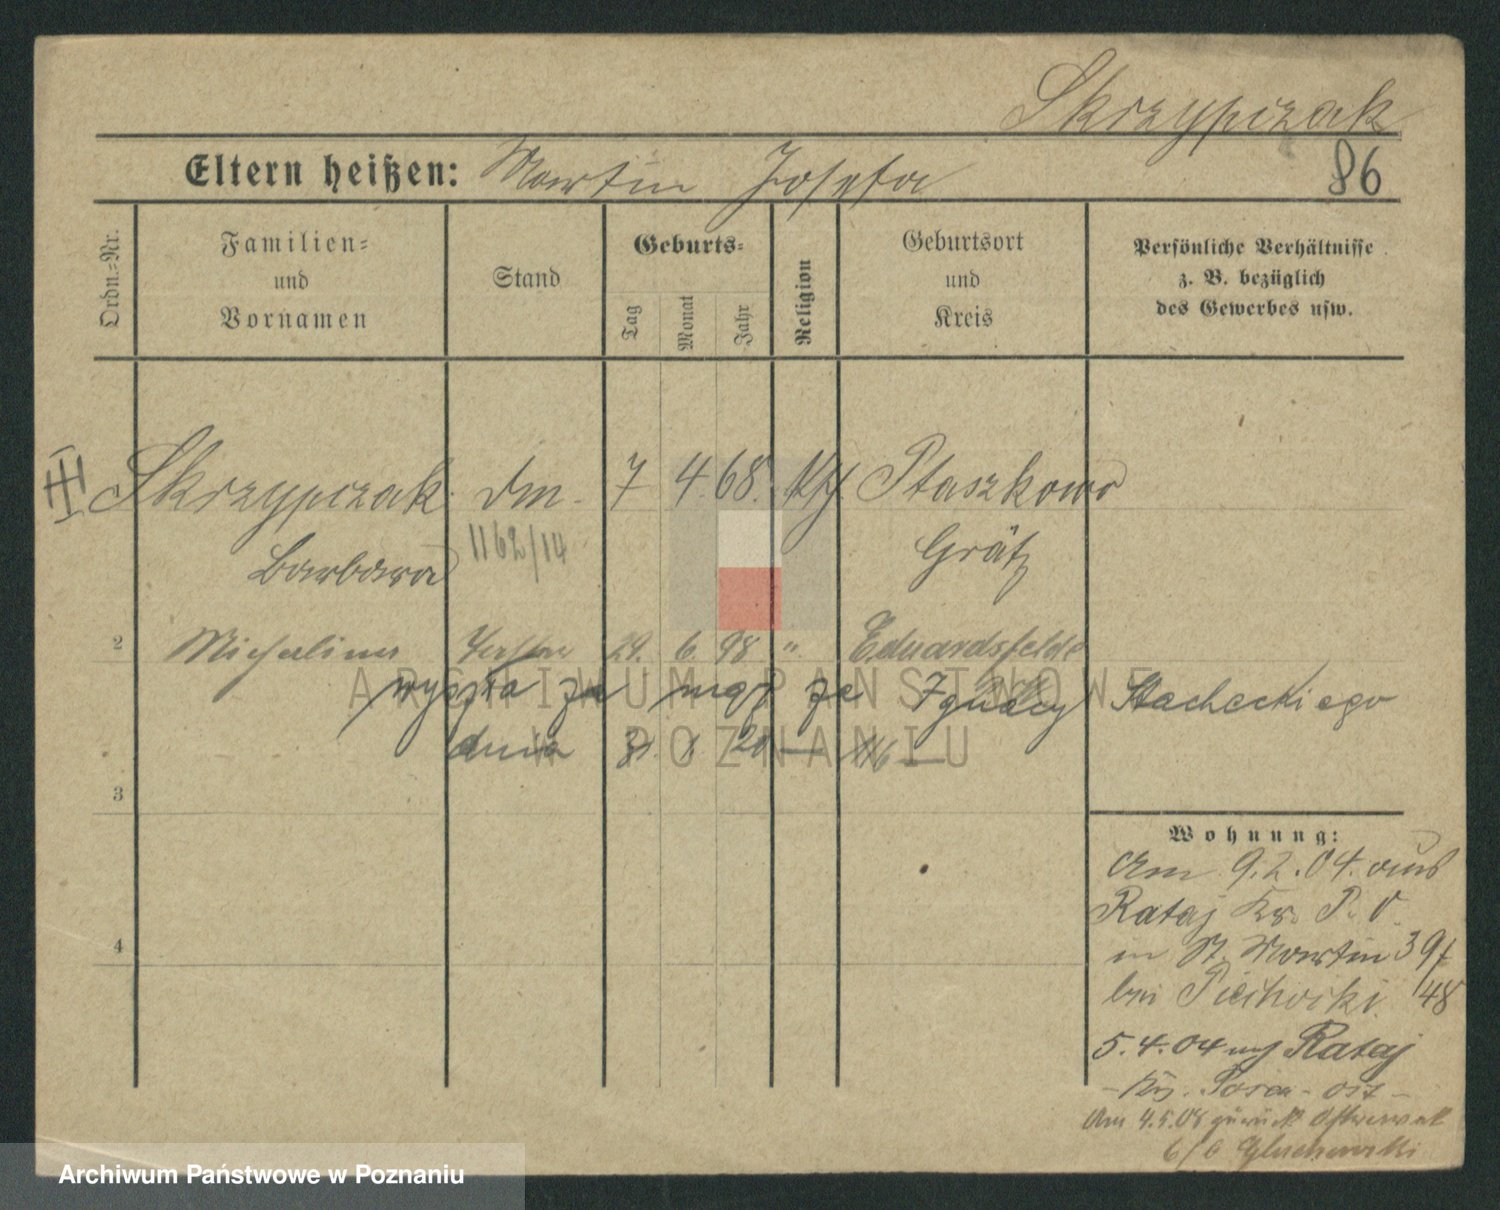 Skrzypczak
Eltern heißen: Martin Josefa
86
Ordn.=Nr.
Familien=
und
Vornamen
Stand
Geburts=
Tag
Monat
Jahr
Religion
Geburtsort
und
Kreis
Persönliche Verhältnisse
z. B. bezüglich
des Gewerbes usw.
Skrzypczak 7 4. 68. kth. Ptaszkowo
Barbara 1162/14 Grätz
2 Michalina Tochter 29. 6. 98 ". Eduardsfelde
wyszła za mąż za Ignacy Stacheckiego
dnia 31. 1. 20
3
4
Wohnung:
Am 9.2.04. aus
Rataj Kr. P. O.
in St. Martin 39/
48
bei Piechocki.
5.4.04 Rataj
- Krs. Posen - ost -
Am 4.5.08 zurück
ARCHIWUM PAŃSTWOWE
W POZNANIU
Archiwum Państwowe w Poznaniu